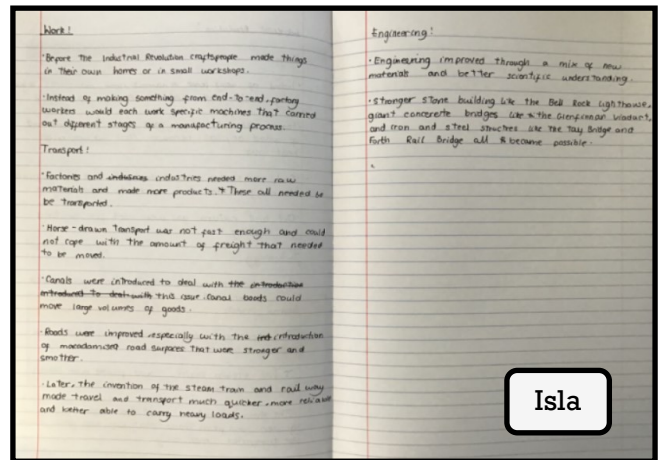 Work!
·Before The Industrial Revolution craftspeople made things
in Their own homes or in small workshops.
·Instead of making something from end-To-end, factory
workers would each work specific machines that carried
out different stages of a manufacturing process.
Transport!
·Factories and industries needed more raw
materials and made more products. These all needed to
be transported.
·Horse-drawn Transport was not fast enough and could
not cope with the amount of freight that needed
to be moved.
·Canals were introduced to deal with
this issue. Canal boats could
move large volumes of goods.
·Roads were improved, especially with the introduction
of macadamised road surfaces that were stronger and
smother.
·Later, the invention of the steam train and rail way
made travel and transport much quicker, more reliable
and better able to carry heavy loads.
Engineering!
·Engineering improved through a mix of new
materials and better scientific understanding.
·Stronger stone building like the Bell Rock Lighthouse,
giant concerete bridges like the Glenfinnan Viaduct,
and iron and steel structres like The Tay Bridge and
Forth Rail Bridge all became possible.
Isla